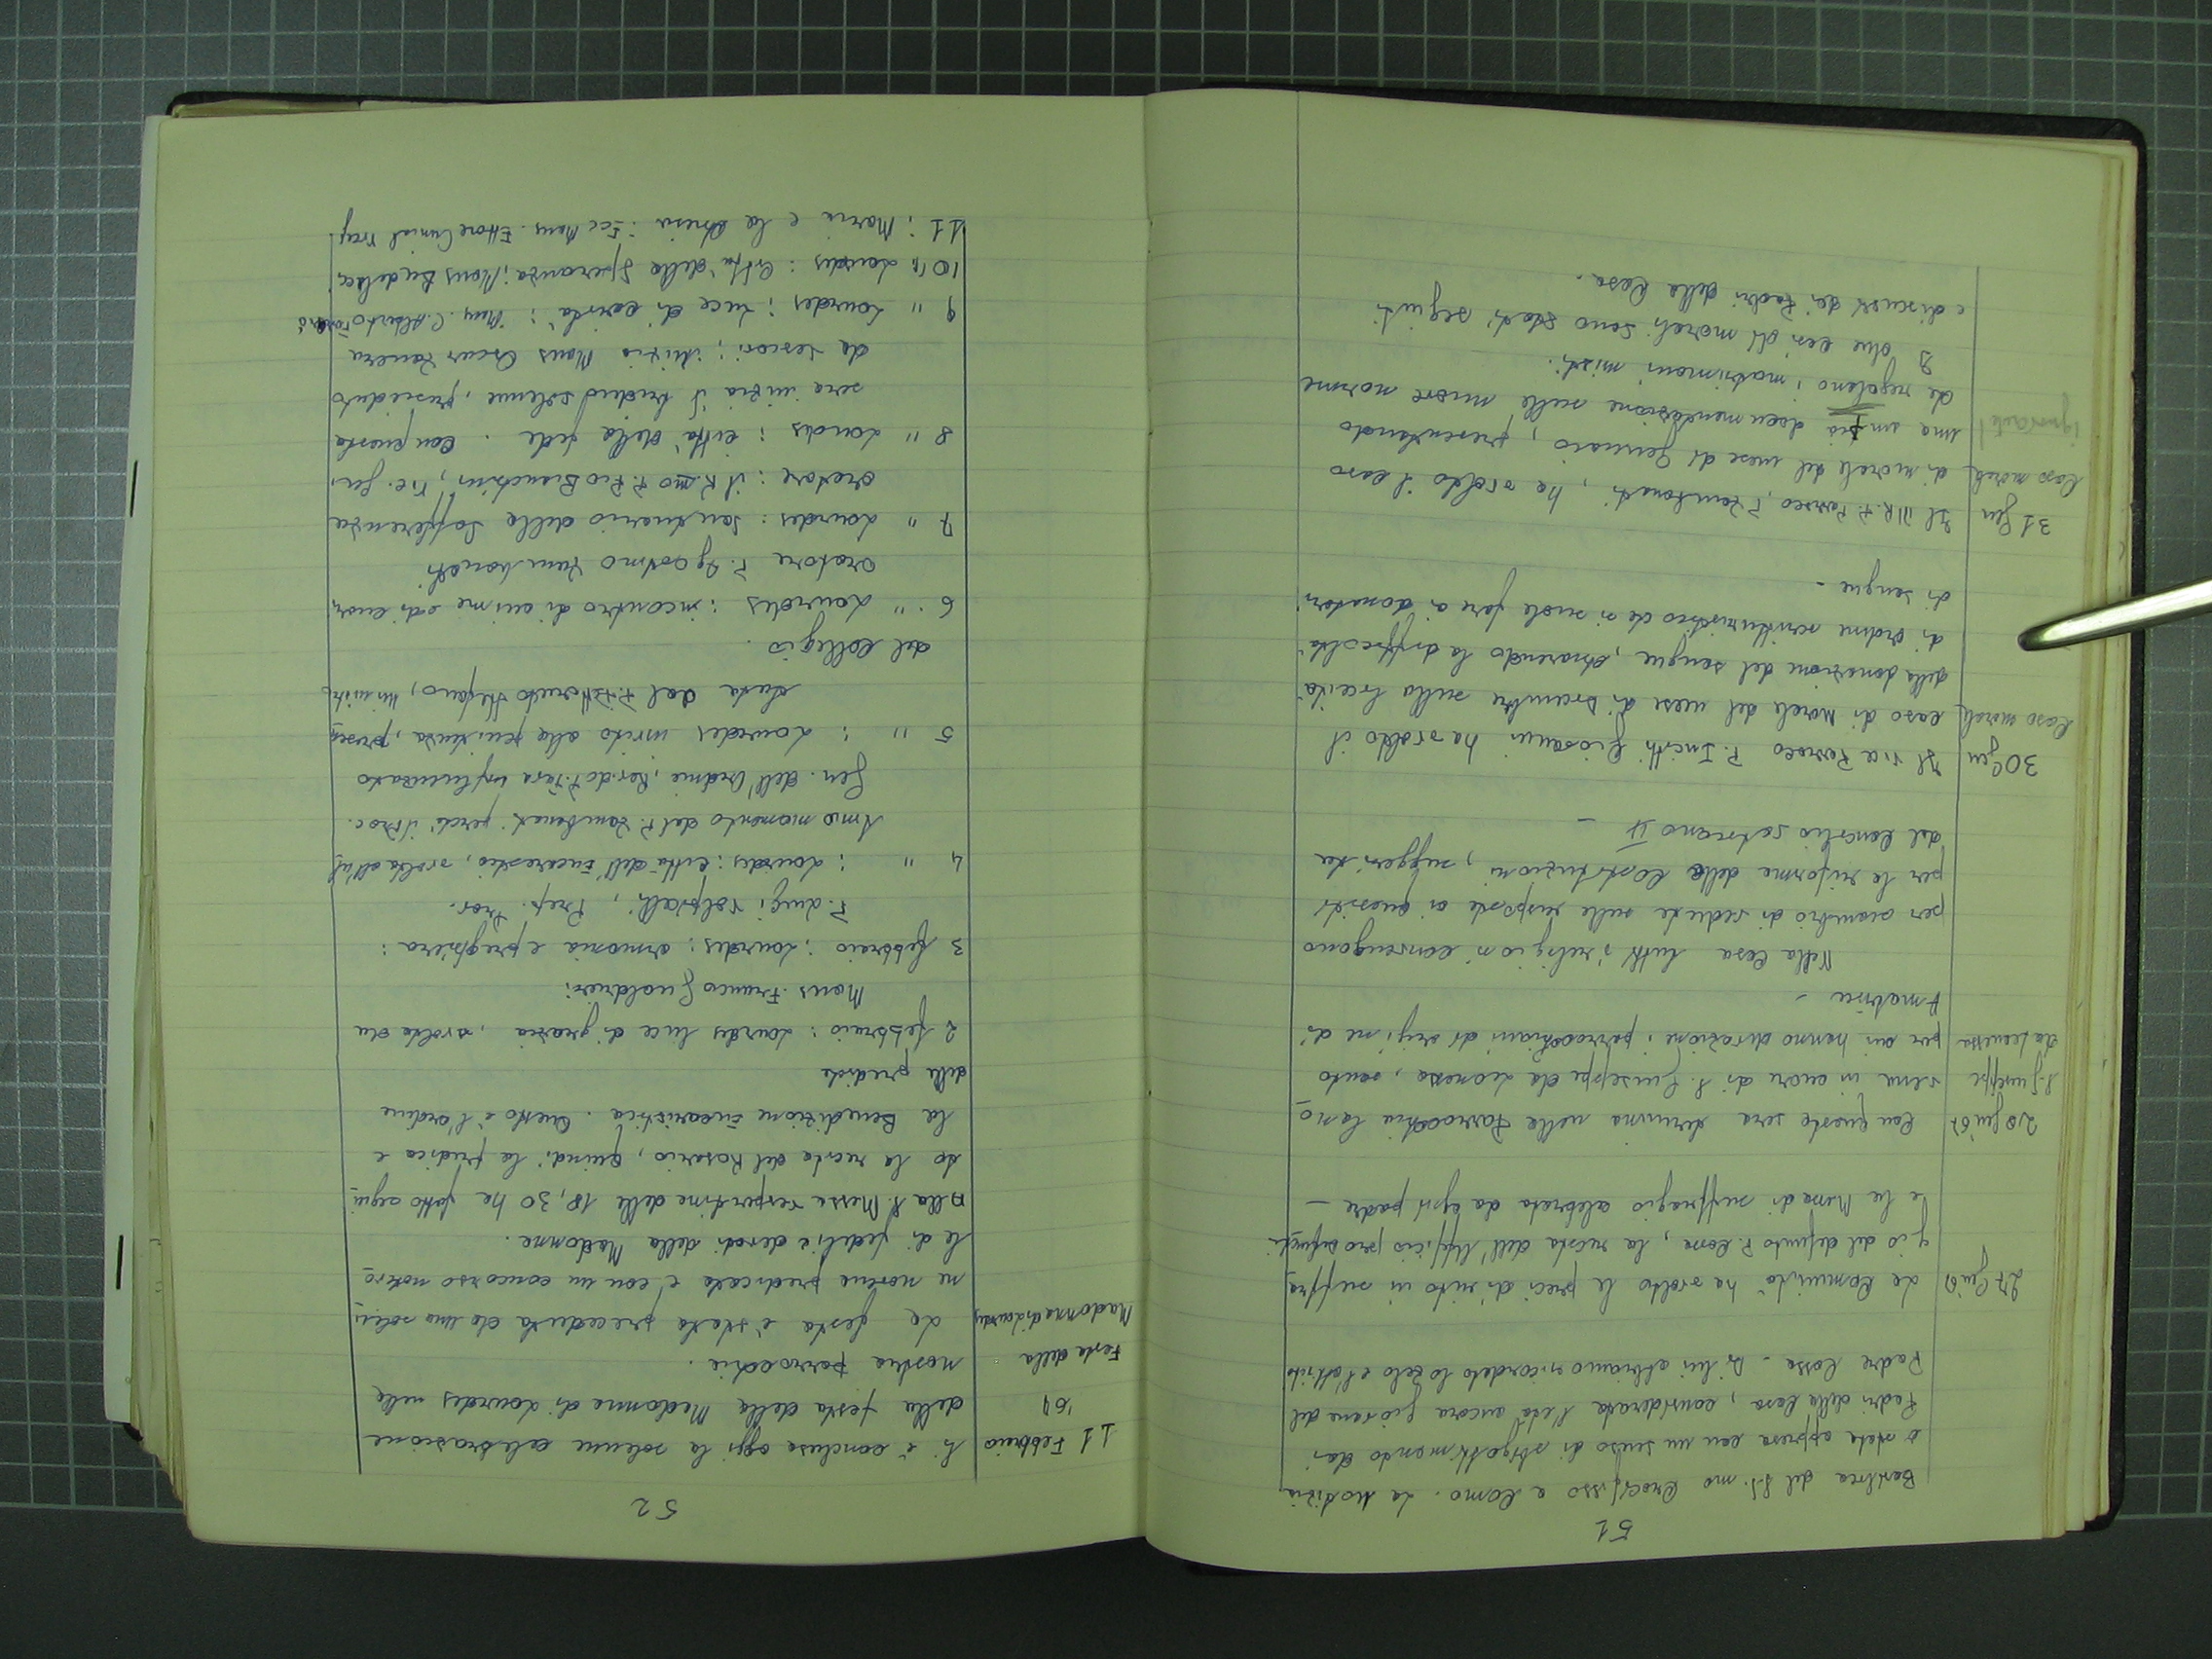 51
Basilica del SS.mo Crocifisso a Como. La notizia
è stata appresa con un senso di sbigottimento dai
Padri della Casa, considerata l'età ancora giovane del
Padre Cossa. Di lui abbiamo ricordato lo zelo e l'attività
27 Gen 67
La Comunità ha svolto le preci di rito in suffra
gio del defunto P. Cossa, la recita dell'Ufficio pro defunctis
e la Messa di suffragio celebrata da ogni padre –
28 Gen 67
S. Giuseppe
da Leonessa
Con questa sera termina nella Parrocchia la no
vena in onore di S. Giuseppe da Leonessa, santo
per cui hanno divozione i parrocchiani di origine di
Amatrice –
Nella Casa tutti i religiosi convengono
per scambio di vedute sulle risposte ai quesiti
per la riforma delle Costituzioni, suggerita
dal Concilio Vaticano II –
30 Gen
Caso morale
Il vice Parroco P. Giovanni ha svolto il
caso di Morale del mese di Dicembre sulla liceità
della donazione del sangue, chiarendo la difficoltà
di ordine scritturistico che si suole fare ai donatori
di sangue –
31 Gen
Caso morale
importante!
Il M.R.P. Parroco, P. Zambonati, ha svolto il caso
di morale del mese di Gennaio, presentando
una ampia documentazione sulle nuove norme
che regolano i matrimoni misti.
I due casi di morale sono stati seguiti
e discussi dai Padri della Casa.
52
11 Febbraio
'67
Festa della
Madonna di Lourdes
Si è conclusa oggi la solenne celebrazione
della festa della Madonna di Lourdes nella
nostra parrocchia.
La festa è stata preceduta da una solen
ne novena predicata e con un concorso notevo
le di fedeli e devoti della Madonna.
Alla S. Messa vespertina delle 18,30 ha fatto segui
to la recita del Rosario, quindi la predica e
la Benedizione Eucaristica. Questo è l'ordine
delle prediche
2 febbraio : Lourdes luce di grazia, svolta da
Mons. Franco Gualdrini
3 febbraio : Lourdes : armonia e preghiera :
P. Luigi Volpicelli, Prep. Prov.
4 " : Lourdes : città dell'Eucarestia, svolta all'ul
timo momento dal P. Zambonati perché il Proc.
Gen. dell'Ordine, Rev. do P. Tara influenzato
5 " : Lourdes invito alla penitenza, presen
tata dal P. Stefano, Ministro
del Collegio.
6 " Lourdes : incontro di anime e di cuori
oratore P. Agostino Zambonati
7 " Lourdes : santuario della sofferenza
oratore : il R.mo P. Pio Bianchini, Vic. Gen.
8 " Lourdes : città della fede. Con questa
sera inizia il triduo solenne, presieduto
da vescovi ; inizia Mons Oscar Zanera
9 " Lourdes : luce di carità : Mons. C. Alberto
10 " Lourdes : città della speranza ; Mons
11 : Maria e la Chiesa : Ecc Mons. Ettore Cunial Viceg.